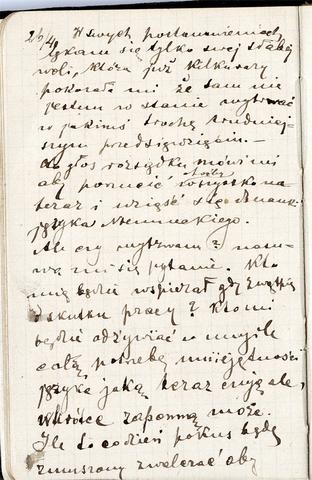 26/4 W swych postanowieniach,
lękam się tylko swej słabej
woli, która już kilkarazy
pokazała mi że sam nie
jestem w stanie wytrwać
w jakimś trochę trudniej-
szym przedsięwzięciu. —
to głos rozsądku mówi mi
aby porzucić to wszystko na
teraz i wziąść się do nauki
języka Niemieckiego.
Ale czy wytrwam? nasu-
wa mi się pytanie. Kto
mię będzie wspierał gdy zwątpię
o skutku pracy? Kto mi
będzie odżywiać w myśle
całą potrzebę umiejętności
języka jaką teraz czuję ale,
wkrótce zapomnę może.
Ile to codzień pokus będę
zmuszony zwalczać aby